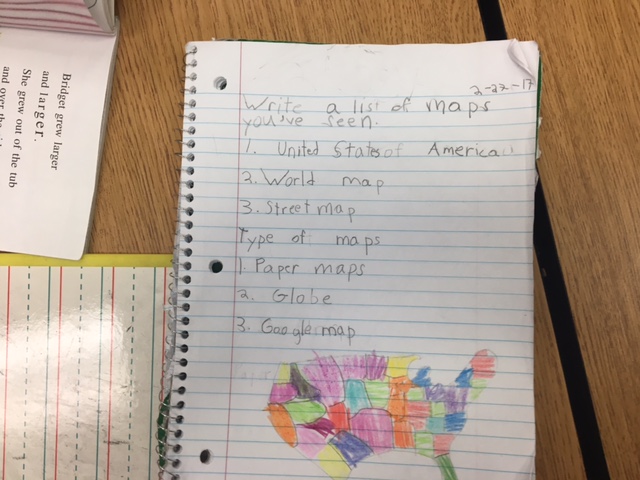 Bridget grew larger
and larger.
She grew out of the tub
and over the
2-22-17
Write a list of maps
you've seen.
1. United States of America
2. World map
3. Street map
Type of maps
1. Paper maps
2. Globe
3. Google map